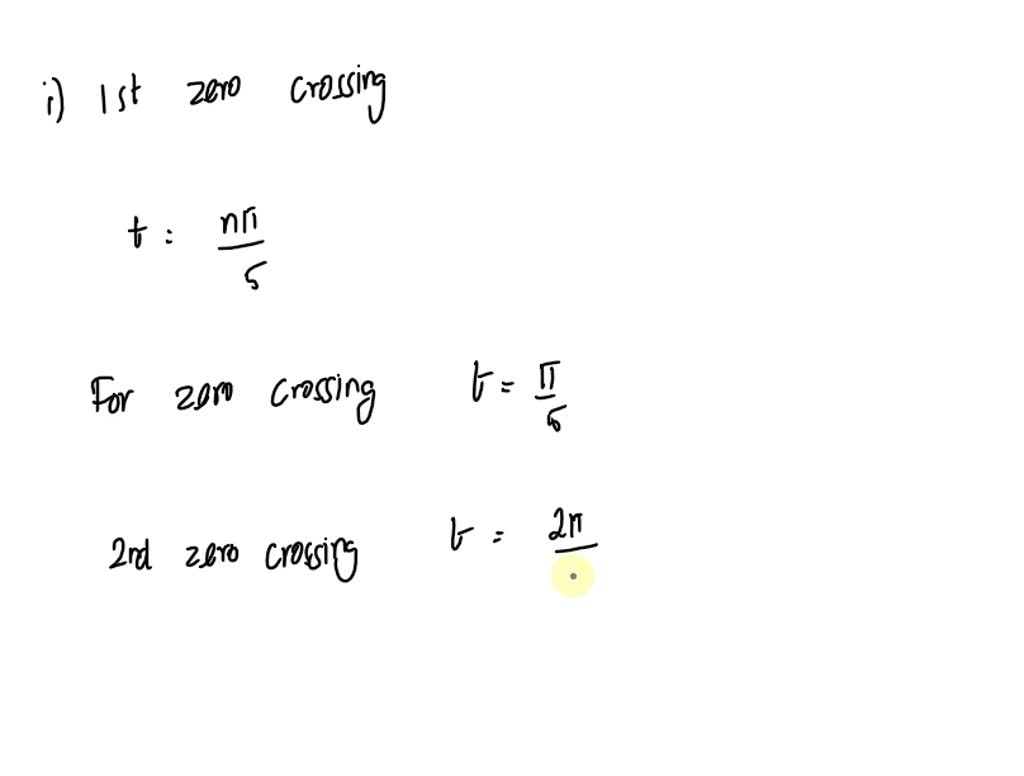 i) 1st zero crossing
t = nπ/5
For zero crossing t = π/5
2nd zero crossing t = 2π/